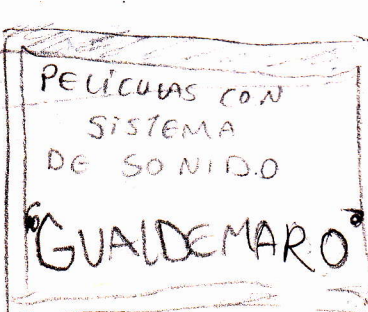 PELÍCULAS CON
SISTEMA
DE SONIDO
"GUALDEMARO"